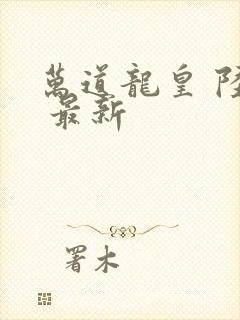 萬道龍皇 陸
最新
署木